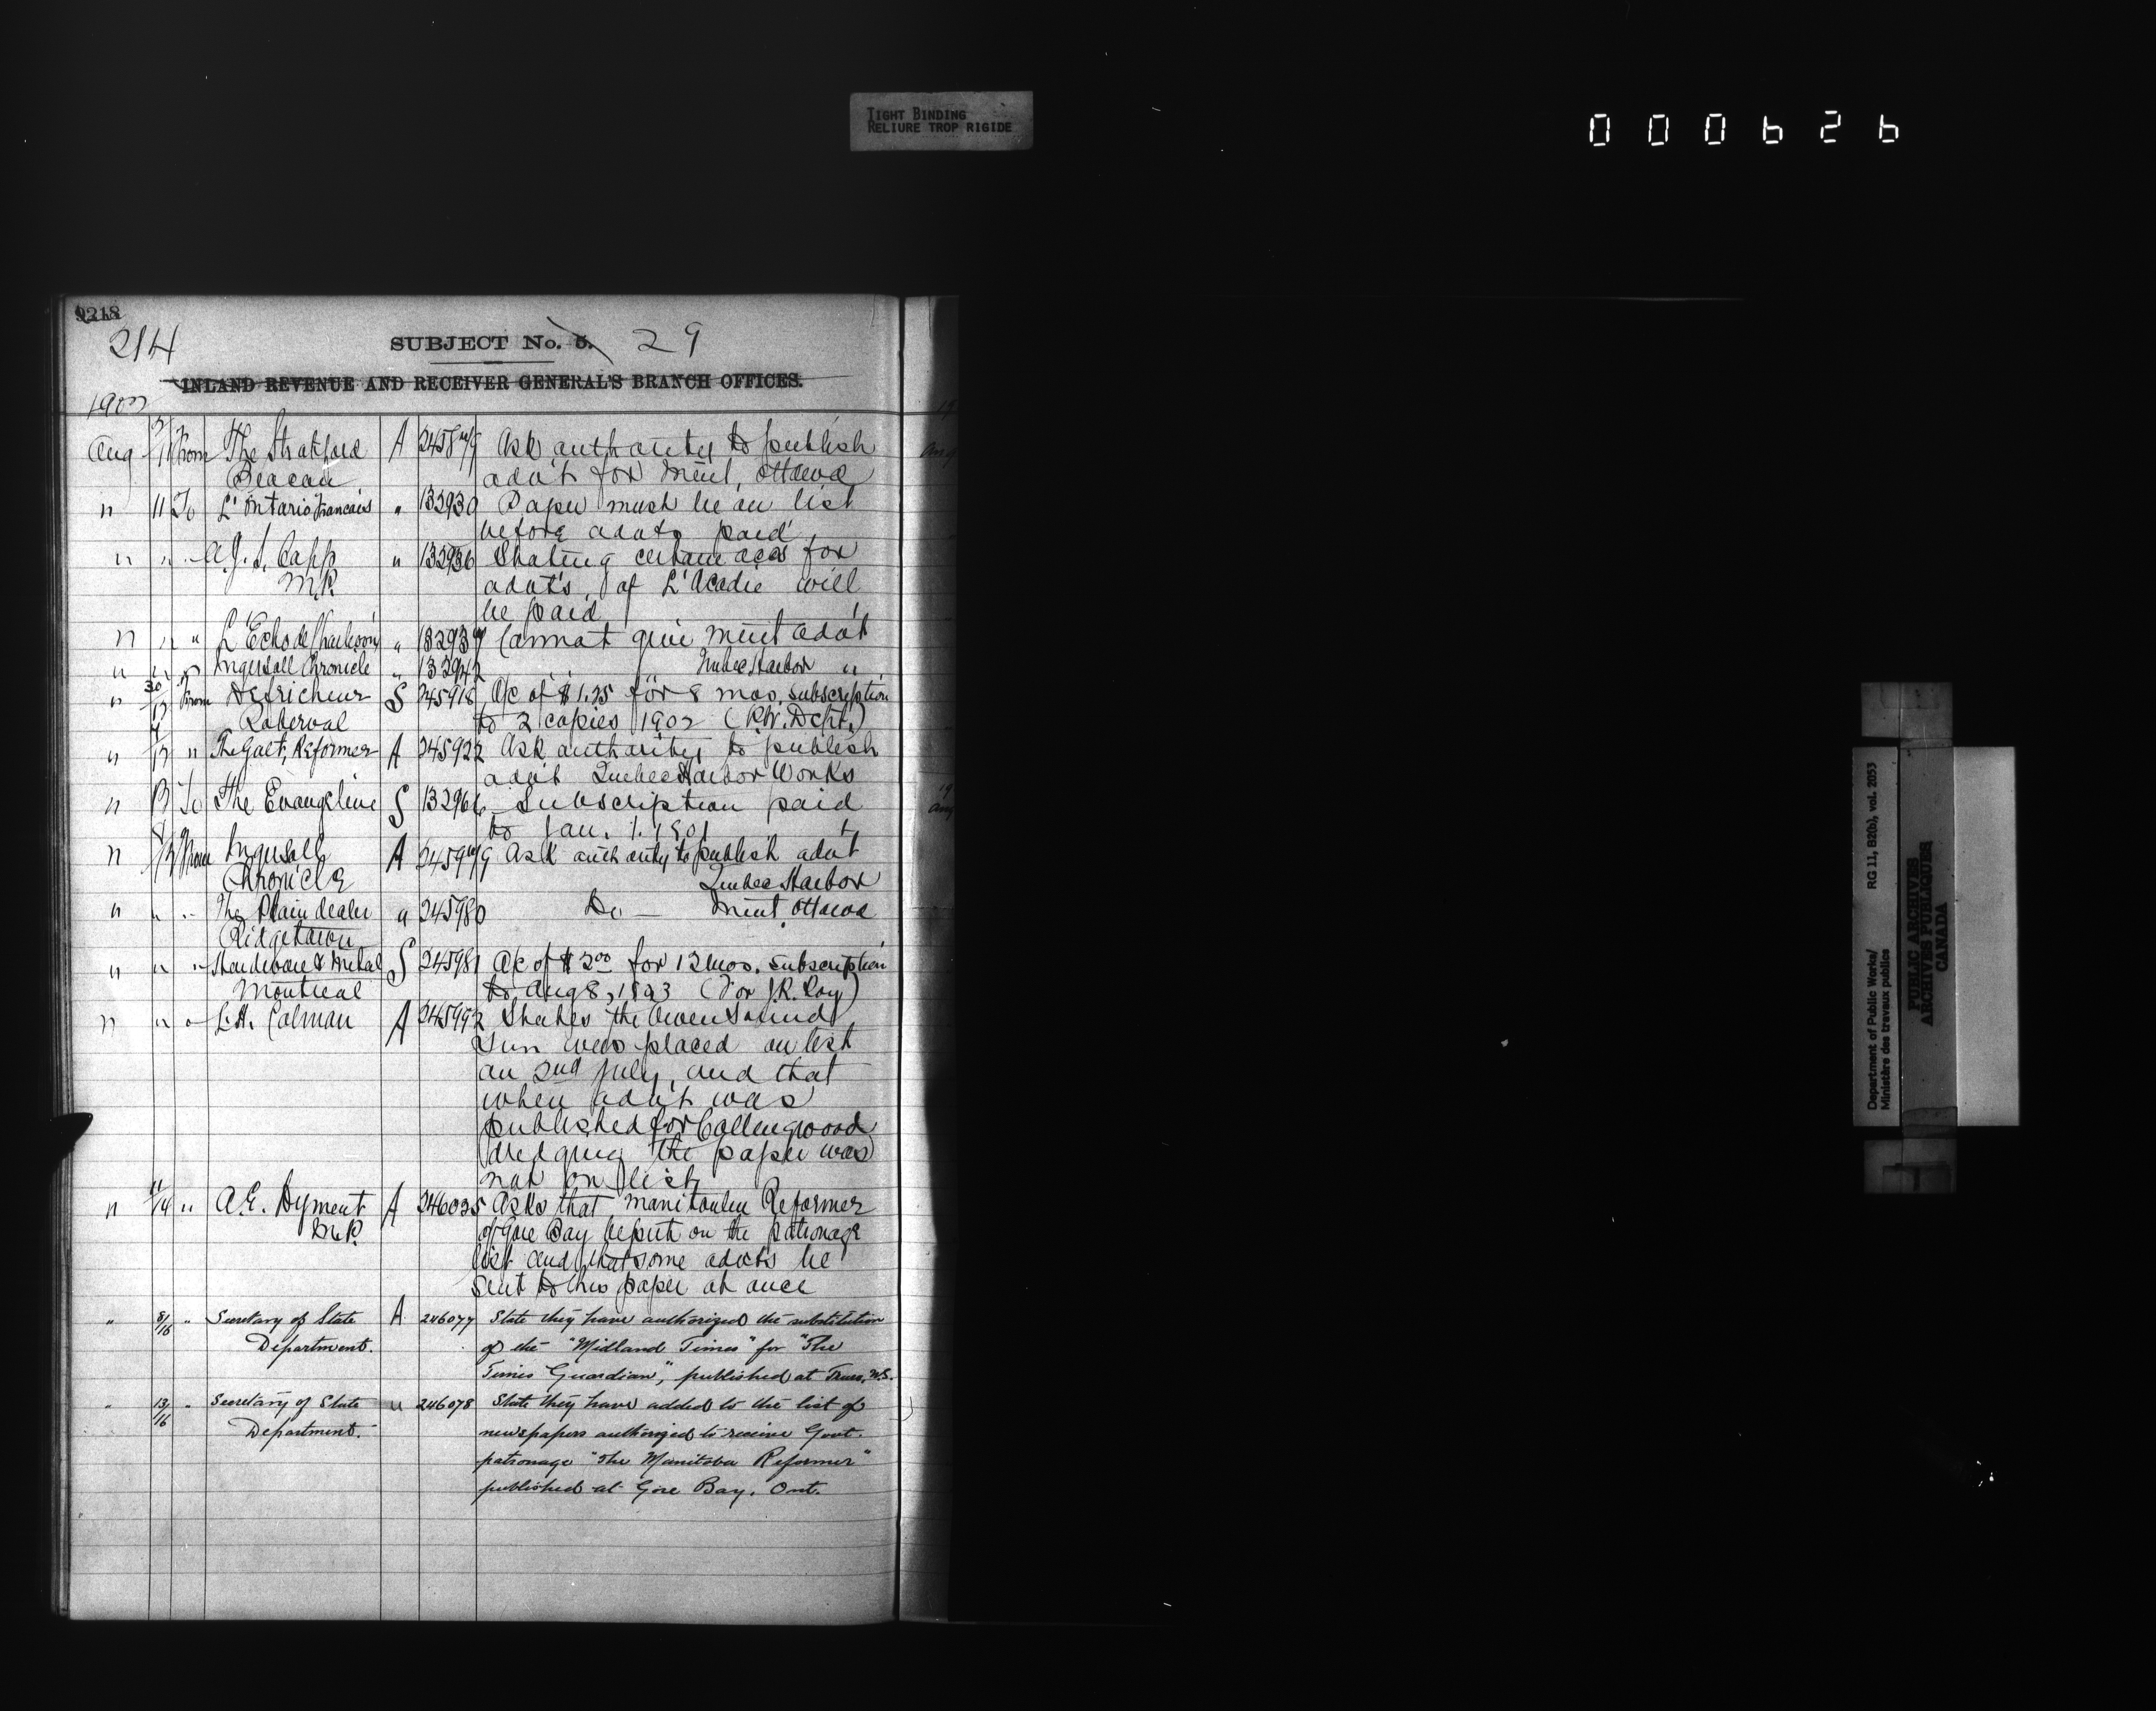 TIGHT BINDING
RELIURE TROP RIGIDE
000626
9218
214
SUBJECT No. 5. 29
INLAND REVENUE AND RECEIVER GENERAL'S BRANCH OFFICES.
1902
Aug 11 From The Stratford A Ask authority to publish
Beacon advt for Mint, Ottawa
" 11 To L'Ontario Francais " 132930 Paper must be on list
before advts paid
" " " " 132936 Stating certain accs for
M.P. advt's, of L'Acadie will
be paid
" " " L'Echo de Charlevoix " 132937 Cannot give Mint advt
" " " Ingersoll Chronicle " 132942 " " Quebec Harbor "
" 30/12 From Defricheur S 245918 A/c of $1.25 for 8 mos. subscription
Roberval to 2 copies 1902
" From The Galt, Reformer A 245922 Ask authority to publish
advt Quebec Harbor Works
" 13 To The Evangeline S 132966 Subscription paid
to Jan. 1. 1901
" From Ingersoll A Ask authority to publish advt
Chronicle Quebec Harbor
" " " The Plaindealer " 245980 Do — Mint, Ottawa
Ridgetown
" " " Hardware & Metal S 245981 A/c of $2.00 for 12 mos. subscription
Montreal to Aug 8, 1903 (For J.R. Roy)
" " " Colman A 245992 States the Owen Sound
Sun was placed on list
on 2nd July, and that
when advt was
published for Collingwood
dredging the paper was
not on list
" 11/14 " A.E. Dyment A 246035 Asks that Manitoulin Reformer
M.P. of Gore Bay be put on the patronage
list and that some advts be
sent to this paper at once
" 8/16 " Secretary of State A 246077 State they have authorized the substitution
Department. of the "Midland Times" for "The
Times Guardian", published at Truro, N.S.
" 13/16 " Secretary of State " 246078 State they have added to the list of
Department. newspapers authorized to receive Govt.
patronage "The Manitoba Reformer"
published at Gore Bay, Ont.
Department of Public Works/ RG 11, B2(b), vol. 2053
Ministère des travaux publics
PUBLIC ARCHIVES
ARCHIVES PUBLIQUES
CANADA